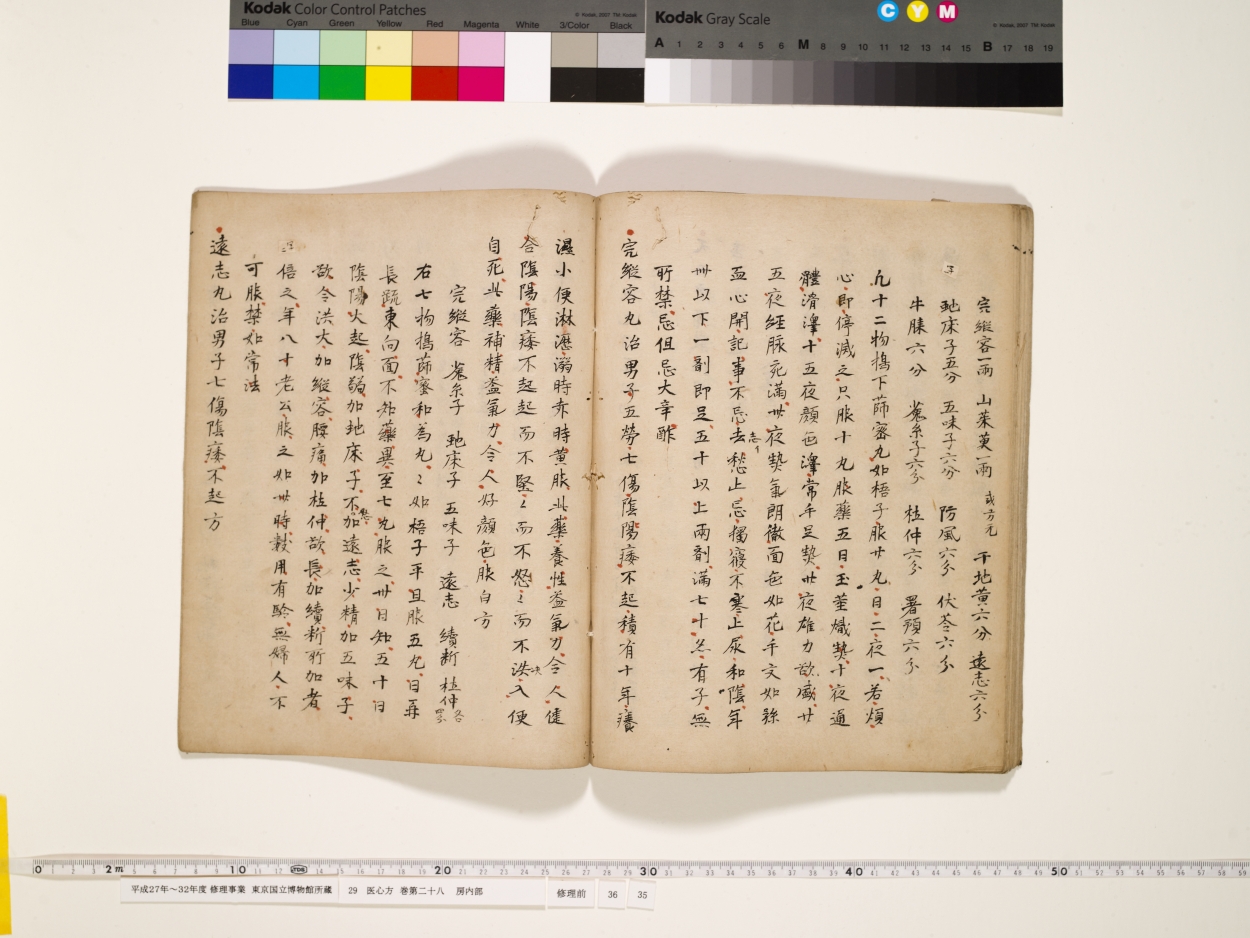 Kodak Color Control Patches
© Kodak, 2007 TM: Kodak
Blue Cyan Green Yellow Red Magenta White 3/Color Black
Kodak Gray Scale
C Y M
© Kodak, 2007 TM: Kodak
A 1 2 3 4 5 6 M 8 9 10 11 12 13 14 15 B 17 18 19
完縱容一兩 山茱萸一兩 或方元 干地黄六分 遠志六分
虵床子五分 五味子六分 防風六分 伏苓六分
牛膝六分 菟糸子六分 杜仲六分 署預六分
凡十二物搗下蒒蜜丸如梧子服廿丸日二夜一若煩
心即停減之只服十丸服藥五日玉茎熾𤍠十夜通
體滑澤十五夜顔色澤常手足𤍠廿夜雄力欲盛廿
五夜經脉充滿卅夜𤍠氣朗徹面色如花手文如絲
而心開記事不忘去愁止忌獨寝不寒止尿和陰年
卌以下一劑即足五十以上兩劑滿七十亦有子無
所禁忌但忌大辛酢
完縱容丸治男子五勞七傷陰陽痿不起積有十年癢
濕小便淋瀝溺時赤時黄服此藥養性益氣力令人健
合陰陽陰痿不起起而不堅々而不怒々而不洪入便
自死此藥補精益氣力令人好顔色服白方
完縱容 菟糸子 虵床子 五味子 遠志 續断 杜仲各四分
右七物搗蒒蜜和為丸々如梧子平旦服五丸日再
長疏東向面不知藥異至七丸服之卅日知五十日
陰陽大起陰弱加虵床子不怒加遠志少精加五味子
欲令洪大加縱容腰痛加杜仲欲長加續断所加者
倍之年八十老公服之如卅時數用有驗無婦人不
可服禁如常法
遠志丸治男子七傷陰痿不起方
0 2m 10 20 30 40 50
平成27年～32年度 修理事業 東京国立博物館所蔵 29 医心方 巻第二十八 房内部 修理前 36 35